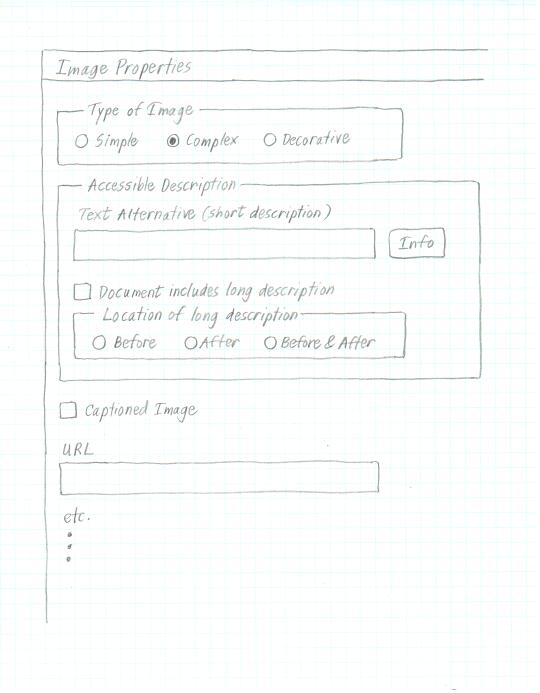 Image Properties
Type of Image
Simple Complex Decorative
Accessible Description
Text Alternative (short description)
Info
Document includes long description
Location of long description
Before After Before & After
Captioned Image
URL
etc.